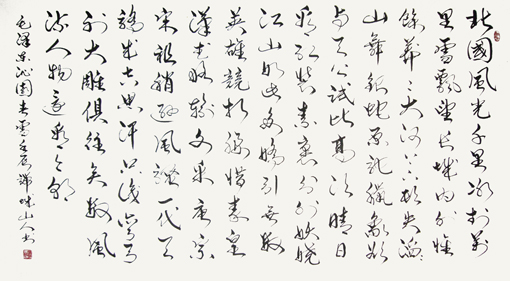 北國風光千里冰封萬
里雪飄望長城內外惟
餘莽莽大河上下頓失滔滔
山舞銀蛇原馳蠟象欲
與天公試比高須晴日
看紅裝素裹分外妖嬈
江山如此多嬌引無數
英雄競折腰惜秦皇
漢武略輸文采唐宗
宋祖稍遜風騷一代天
驕成吉思汗只識彎弓
射大雕俱往矣數風
流人物還看今朝
毛澤東沁園春雪壬辰山人書